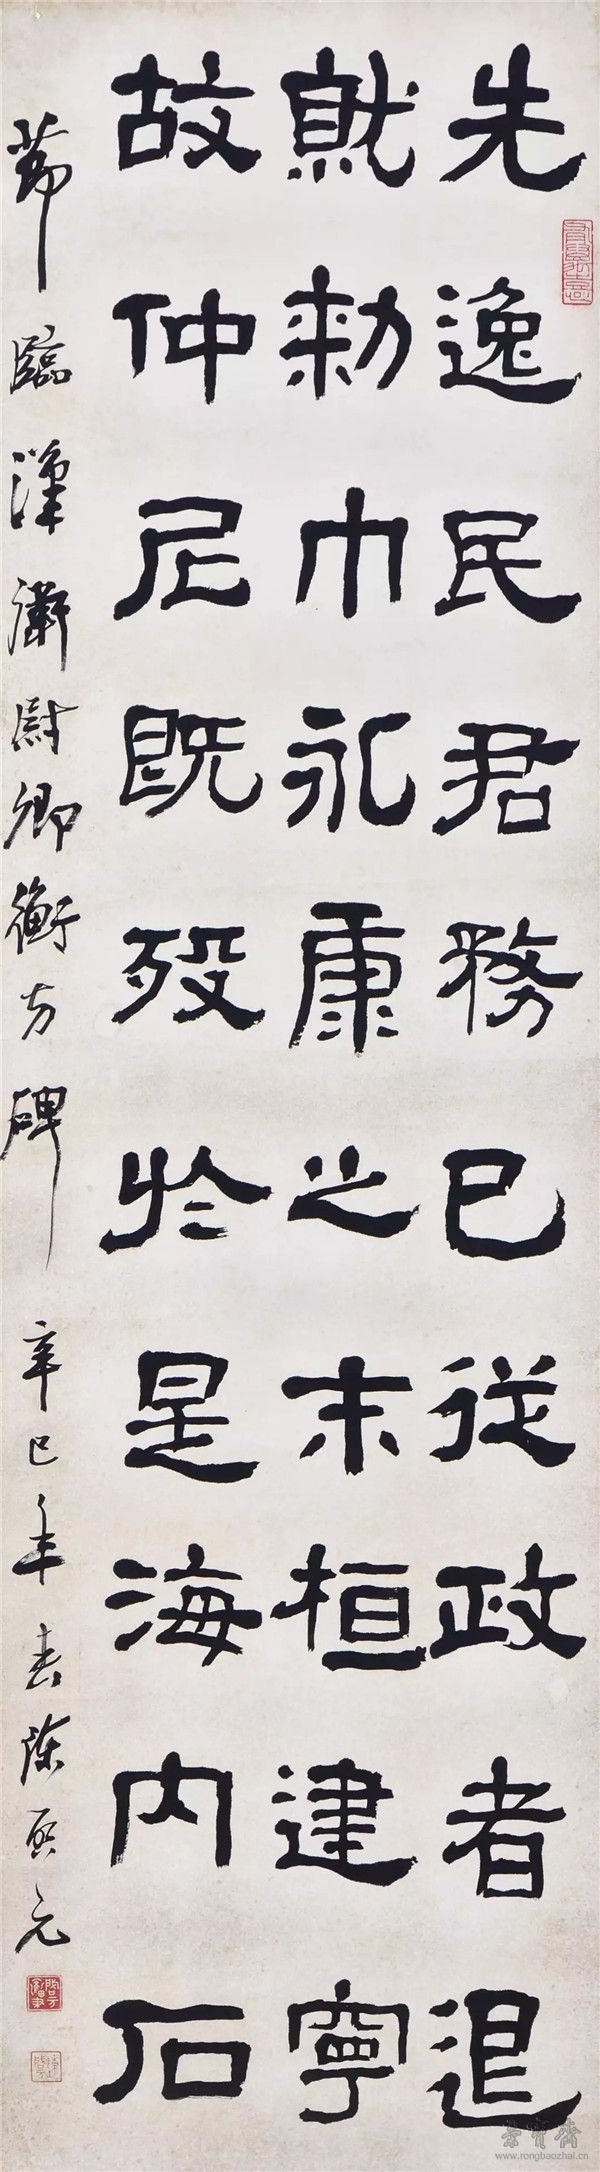 先逸民君務已從政者退
就勑巾永康之末桓建寧
故仲尼既歿於是海内石
節臨漢衛尉卿衡方碑 辛巳年春陳啓元
榮寶齋
www.rongbaozhai.cn